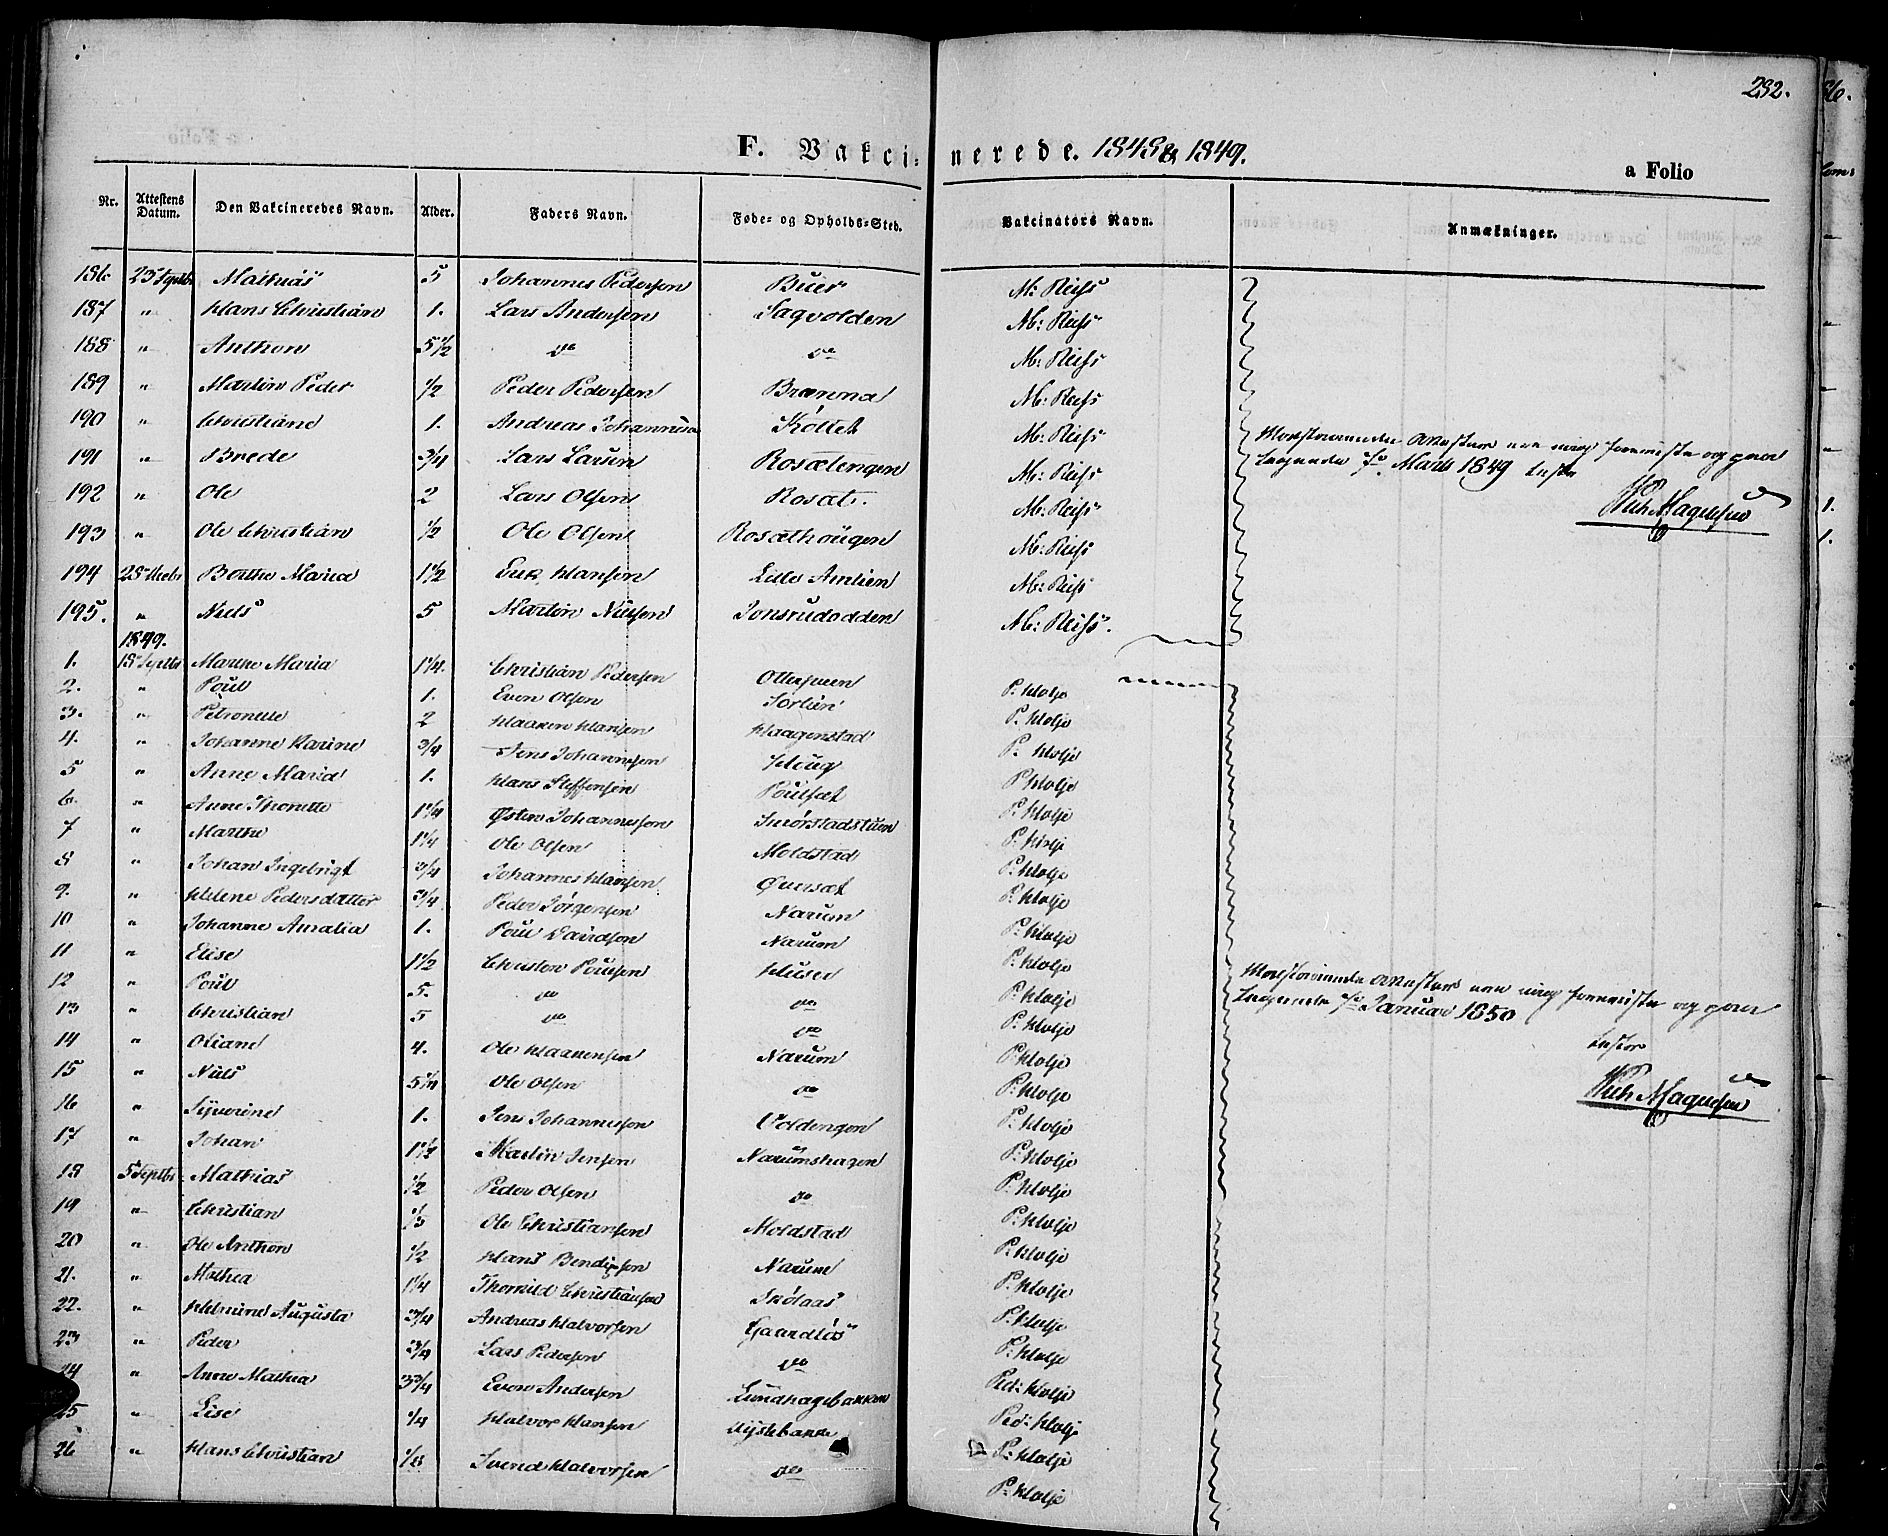 282.
F. Vakcinerede. 1848 & 1849.
a Folio
Nr. Attestens Datum. Den Vakcineredes Navn. Alder. Faders Navn. Føde- og Opholds-Sted. Vakcinators Navn. Anmærkninger.
186 25 Septbr Mathias 5 Johannes Pedersen Buer M: Reiss
187 " Hans Christian 1. Lars Andersen Sagvolden M: Reiss
188 " Anthon 5½ do do M: Reiss
189 " Martin Peder ½ Peder Pedersen Brænna M: Reiss
190 " Christiane 1. Andreas Johannesen M: Reiss
191 " Brede ¾ Lars Larsen Rosætengen M: Reiss
192 " Ole 2 Lars Olsen Rosæt. M: Reiss
193 " Ole Christian ½ Ole Olsen Rosæthougen M: Reiss
194 Berthe Maria 1½ Erik Hansen Lille Amlien M: Reiss
195. " Niels 5 Martin Nielsen Jonsrudodden M: Reiss.
Marts 1849
1849.
1. 18 Septbr Marthe Maria 1¼. Christian Pedersen Ottersveen P: Holje
2. " Poul 1. Even Olsen Sorlien P: Holje
3. " Petronelle 2 Haaken Hansen Haagenstad P: Holje
4. " Johanne Karine ¾ Jens Johannesen Houg P. Holje
5 " Anne Maria 1. Hans Steffensen Poulsæt P: Holje
6. " Anne Thorette 1¼ Østen Johannesen Smørstadstuen P: Holje
7 " Marthe 1¼ Ole Olsen Moldstad P: Holje
8 " Johan Ingebrigt ¾ Johannes Hansen Øversæt P: Holje
9. " Helene Pedersdatter ¾ Peder Jörgensen Narum P: Holje
10 " Johanne Amalia 1. Poul Davidsen Narum P: Holje
11 " Elise 1½ Christen Poulsen Huser P: Holje
12 " Poul 5. do do P: Holje
13 " Christian 5 do do P: Holje
14 " Oliane 4. Ole Haakensen Narum P: Holje
15 " Niels 5¼ Ole Olsen do P: Holje
Januar 1850
16 " Syverine 1. Jens Johannesen Voldengen P: Holje
17 " Johan 1½ Martin Jensen Narumshagen P: Holje
18 5 Septbr Mathias ½ Peder Olsen do P: Holje
19 " Christian Ole Christiansen Moldstad P: Holje
20 " Ole Anthon ½ Hans Bendigsen Narum P: Holje
21. " Mathea 1¼ Thorkild Christiansen P: Holje
22. " Helmine Augusta ¾ Andreas Halvorsen Gaardløs P: Holje
23 " Peder ¾ Lars Pedersen do P: Holje
24 " Anne Mathea 3¾ Even Andersen Lundhagebakken Ped: Holje
25 " Lise ¼ Halvor Hansen Ped: Holje
26 " Hans Christian Svend Halvorsen do P: Holje
P: Holje